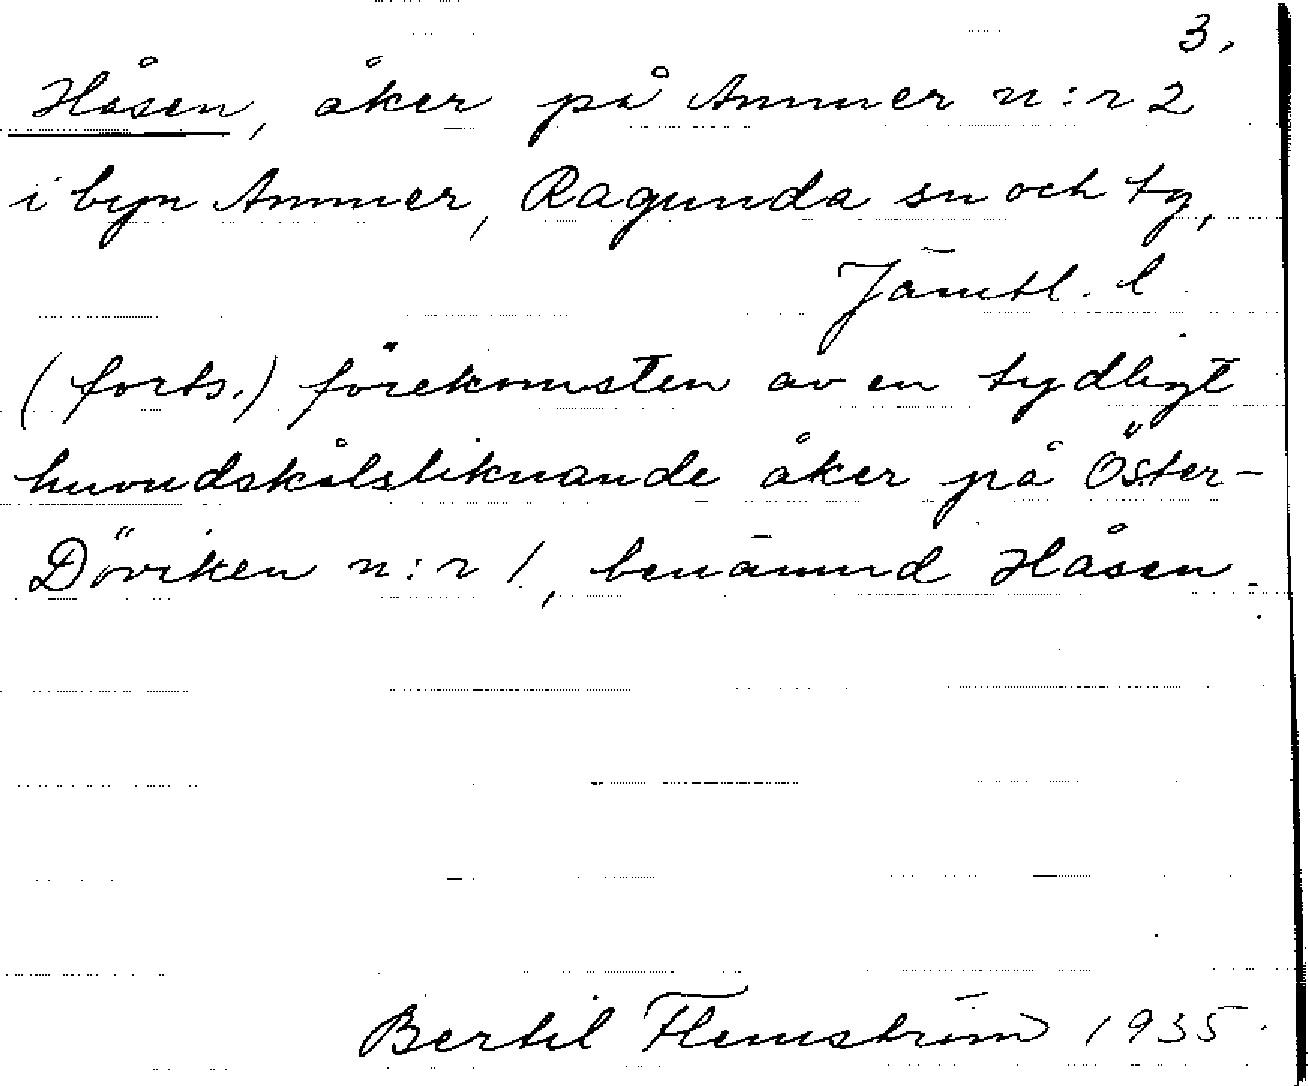 3.
Håsen, åker på Ammer n:r 2
i byn Ammer, Ragunda sn och tg,
Jämtl. l.
(forts.) förekomsten av en tydligt
huvudskålsliknande åker på Öster-
Döviken n:r 1, benämnd Håsen.
Bertil Flemström 1935.